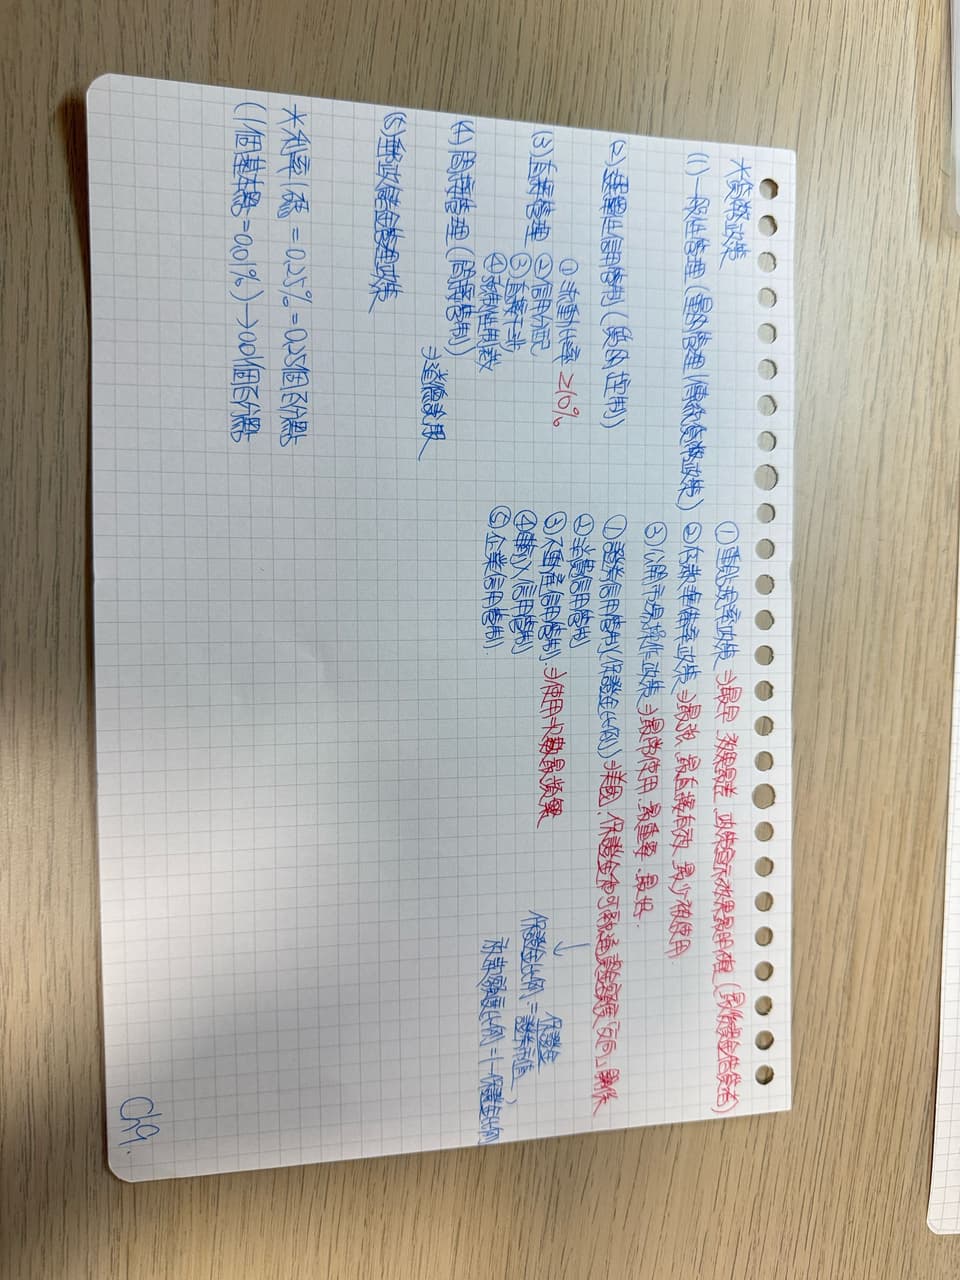 *貨幣政策
(1)一般性管理(量的管理/傳統貨幣政策)
①重貼現率政策⇒最早 效果最差 政策宣示效果最明確(最後資金依靠者)
②存款準備率政策⇒最強、最直接有效、最少被使用
③公開市場操作政策⇒最常使用.最重要.最快.
(2)選擇性信用管制(質的控制)
①證券信用管制(保證金比例)⇒美國:保證金和可融通資金額度「反向」關係
↓
保證金比例=保證金/證券市值
融資額度比例=1-保證金比例
②消費信用管制
③不動產信用管制.⇒使用次數最頻繁
④輸入信用管制
⑤企業信用管制.
(3)直接管理
①流動比率 ≥10%
②信用分配
③直接干涉
④強制性用款
(4)間接管理(間接管制)
⇒道德說服
(5)郵政儲金轉存政策
*利率1碼=0.25%=0.25個百分點
(1個基本點=0.01%)→0.01個百分點
ch9.